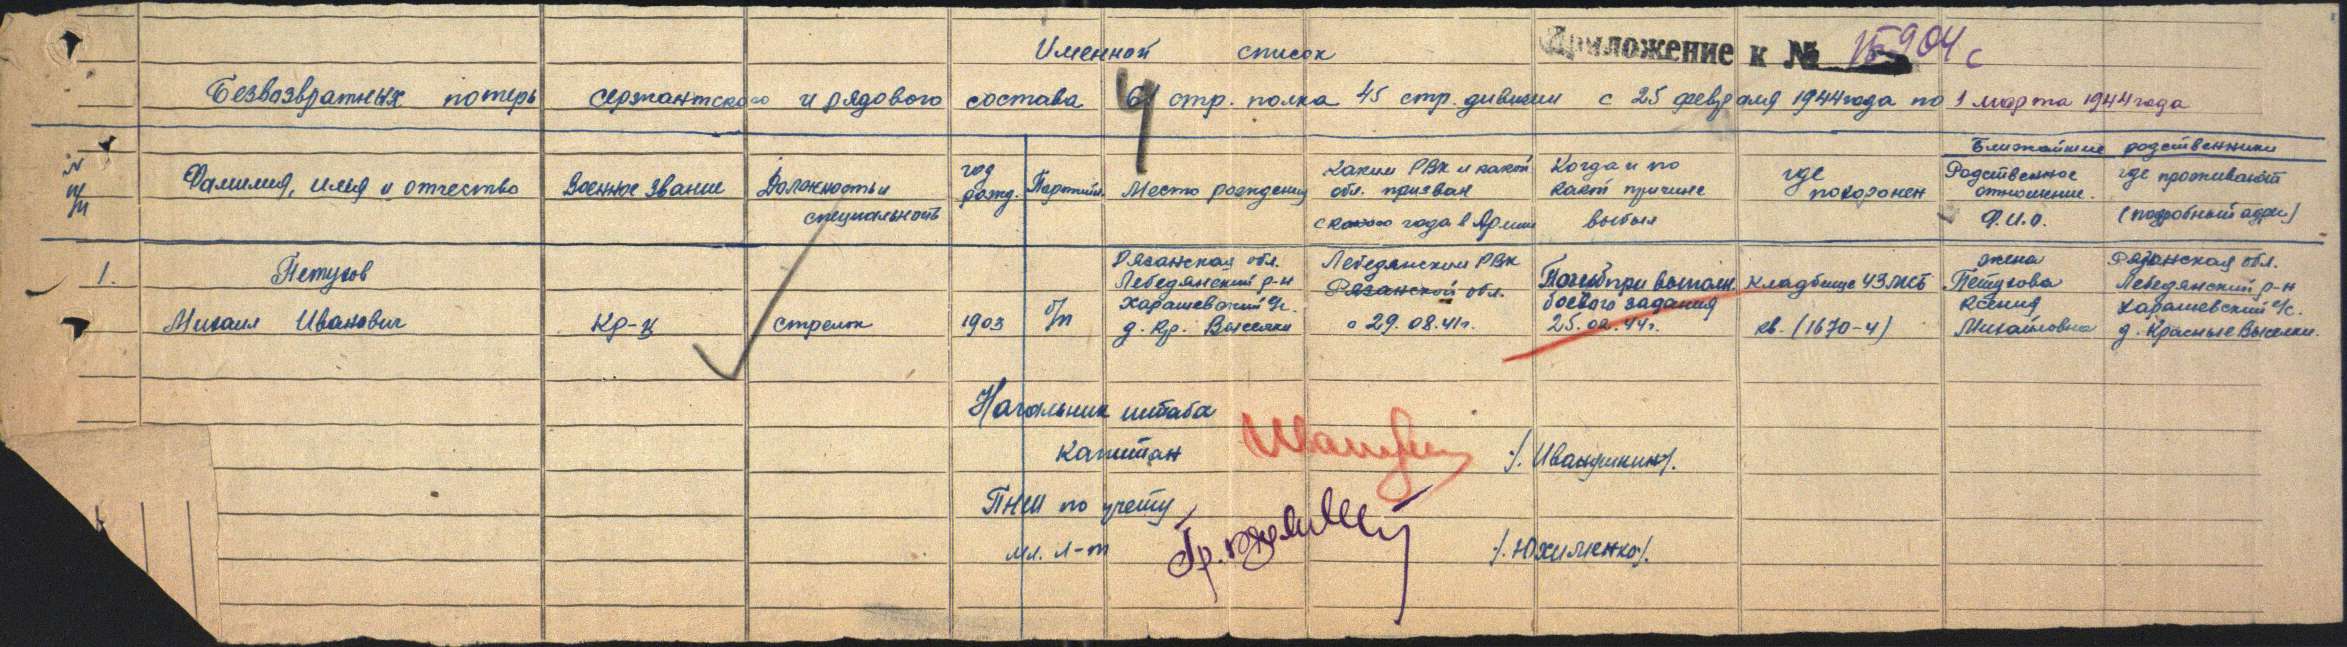 Именной список
Приложение к № 15904с
Безвозвратных потерь сержантского и рядового состава 61 стр. полка 45 стр. дивизии с 25 февраля 1944 года по 1 марта 1944 года
4
Ближайшие родственники
N п/п
Фамилия, имя и отчество
Военное звание
Должность и специальность
год рожд.
Партийн.
Место рождения
Каким РВК и какой обл. призван
с какого года в Армии
Когда и по какой причине выбыл
где похоронен
Родственное отношение. Ф.И.О.
где проживают (подробный адрес)
1.
Петухов
Михаил Иванович
Кр-ц
стрелок
1903
б/п
Рязанская обл.
Лебедянский р-н
Харашевский с/с.
д. Кр. Выселки
Лебедянским РВК
Рязанской обл.
с 29.08.41г.
Погиб при выполн.
боевого задания
25.02.44г.
Кладбище
кв. (1670-4)
жена
Петухова
Михайловна
Рязанская обл.
Лебедянский р-н
Харашевский с/с.
д. Красные Выселки.
Начальник штаба
Капитан
/. Иванушкин/.
ПНШ по учету
мл. л-т
/. Юхименко/.